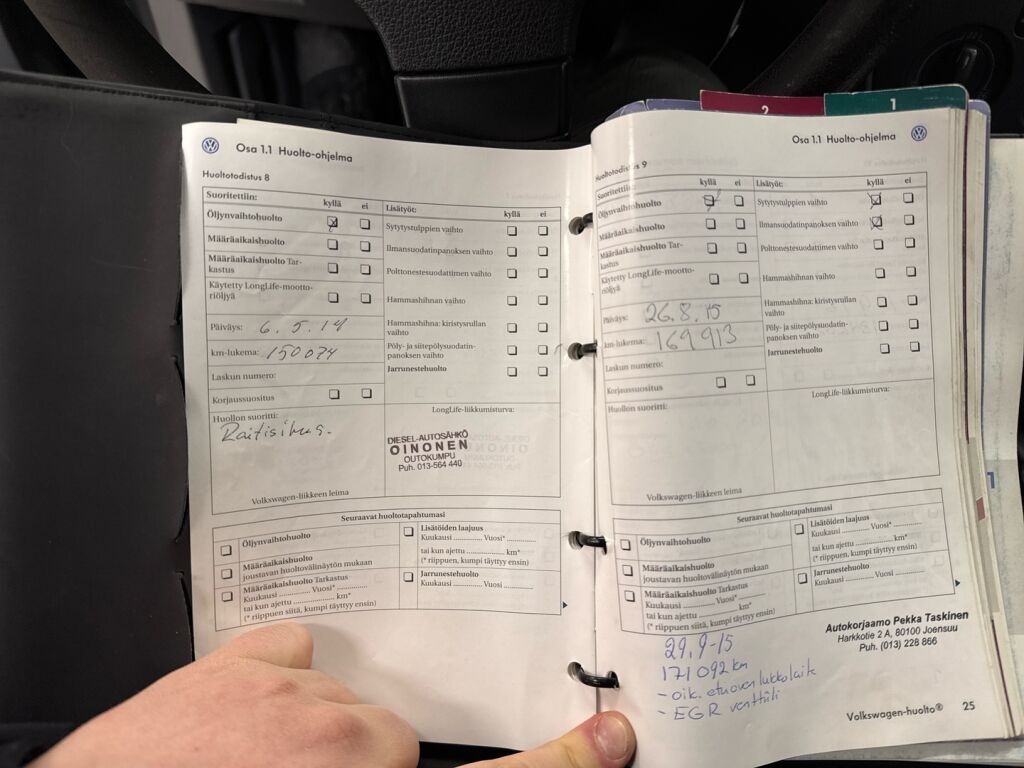 2
1
Osa 1.1 Huolto-ohjelma
Huoltotodistus 8
Suoritettiin:
kyllä ei
Öljynvaihtohuolto
Määräaikaishuolto
Määräaikaishuolto Tar-
kastus
Käytetty LongLife-mootto-
riöljyä
Päiväys: 6.5.14
km-lukema: 150074
Laskun numero:
Korjaussuositus
Huollon suoritti:
Raitisilmas.
Volkswagen-liikkeen leima
Lisätyöt:
kyllä ei
Sytytystulppien vaihto
Ilmansuodatinpanoksen vaihto
Polttonestesuodattimen vaihto
Hammashihnan vaihto
Hammashihna: kiristysrullan
vaihto
Pöly- ja siitepölysuodatin-
panoksen vaihto
Jarrunestehuolto
LongLife-liikkumisturva:
DIESEL-AUTOSÄHKÖ
OINONEN
OUTOKUMPU
Puh. 013-564 440
Seuraavat huoltotapahtumasi
Öljynvaihtohuolto
Määräaikaishuolto
joustavan huoltovälinäytön mukaan
Määräaikaishuolto Tarkastus
Kuukausi ........... Vuosi* ...........
tai kun ajettu ................ km*
(* riippuen siitä, kumpi täyttyy ensin)
Lisätöiden laajuus
Kuukausi ........... Vuosi* ...........
tai kun ajettu ................ km*
(* riippuen, kumpi täyttyy ensin)
Jarrunestehuolto
Kuukausi ........... Vuosi ...........
Osa 1.1 Huolto-ohjelma
Huoltotodistus 9
Suoritettiin:
kyllä ei
Öljynvaihtohuolto
Määräaikaishuolto
Määräaikaishuolto Tar-
kastus
Käytetty LongLife-mootto-
riöljyä
Päiväys: 26.8.15
km-lukema: 169913
Laskun numero:
Korjaussuositus
Huollon suoritti:
Volkswagen-liikkeen leima
Lisätyöt:
kyllä ei
Sytytystulppien vaihto
Ilmansuodatinpanoksen vaihto
Polttonestesuodattimen vaihto
Hammashihnan vaihto
Hammashihna: kiristysrullan
vaihto
Pöly- ja siitepölysuodatin-
panoksen vaihto
Jarrunestehuolto
LongLife-liikkumisturva:
Seuraavat huoltotapahtumasi
Öljynvaihtohuolto
Määräaikaishuolto
joustavan huoltovälinäytön mukaan
Määräaikaishuolto Tarkastus
Kuukausi ........... Vuosi* ...........
tai kun ajettu ................ km*
(* riippuen siitä, kumpi täyttyy ensin)
Lisätöiden laajuus
Kuukausi ........... Vuosi* ...........
tai kun ajettu ................ km*
(* riippuen, kumpi täyttyy ensin)
Jarrunestehuolto
Kuukausi ........... Vuosi ...........
29.9-15
171092 km
- oik. etuoven lukkolaite
- EGR venttiili
Autokorjaamo Pekka Taskinen
Harkkotie 2 A, 80100 Joensuu
Puh. (013) 228 866
Volkswagen-huolto® 25